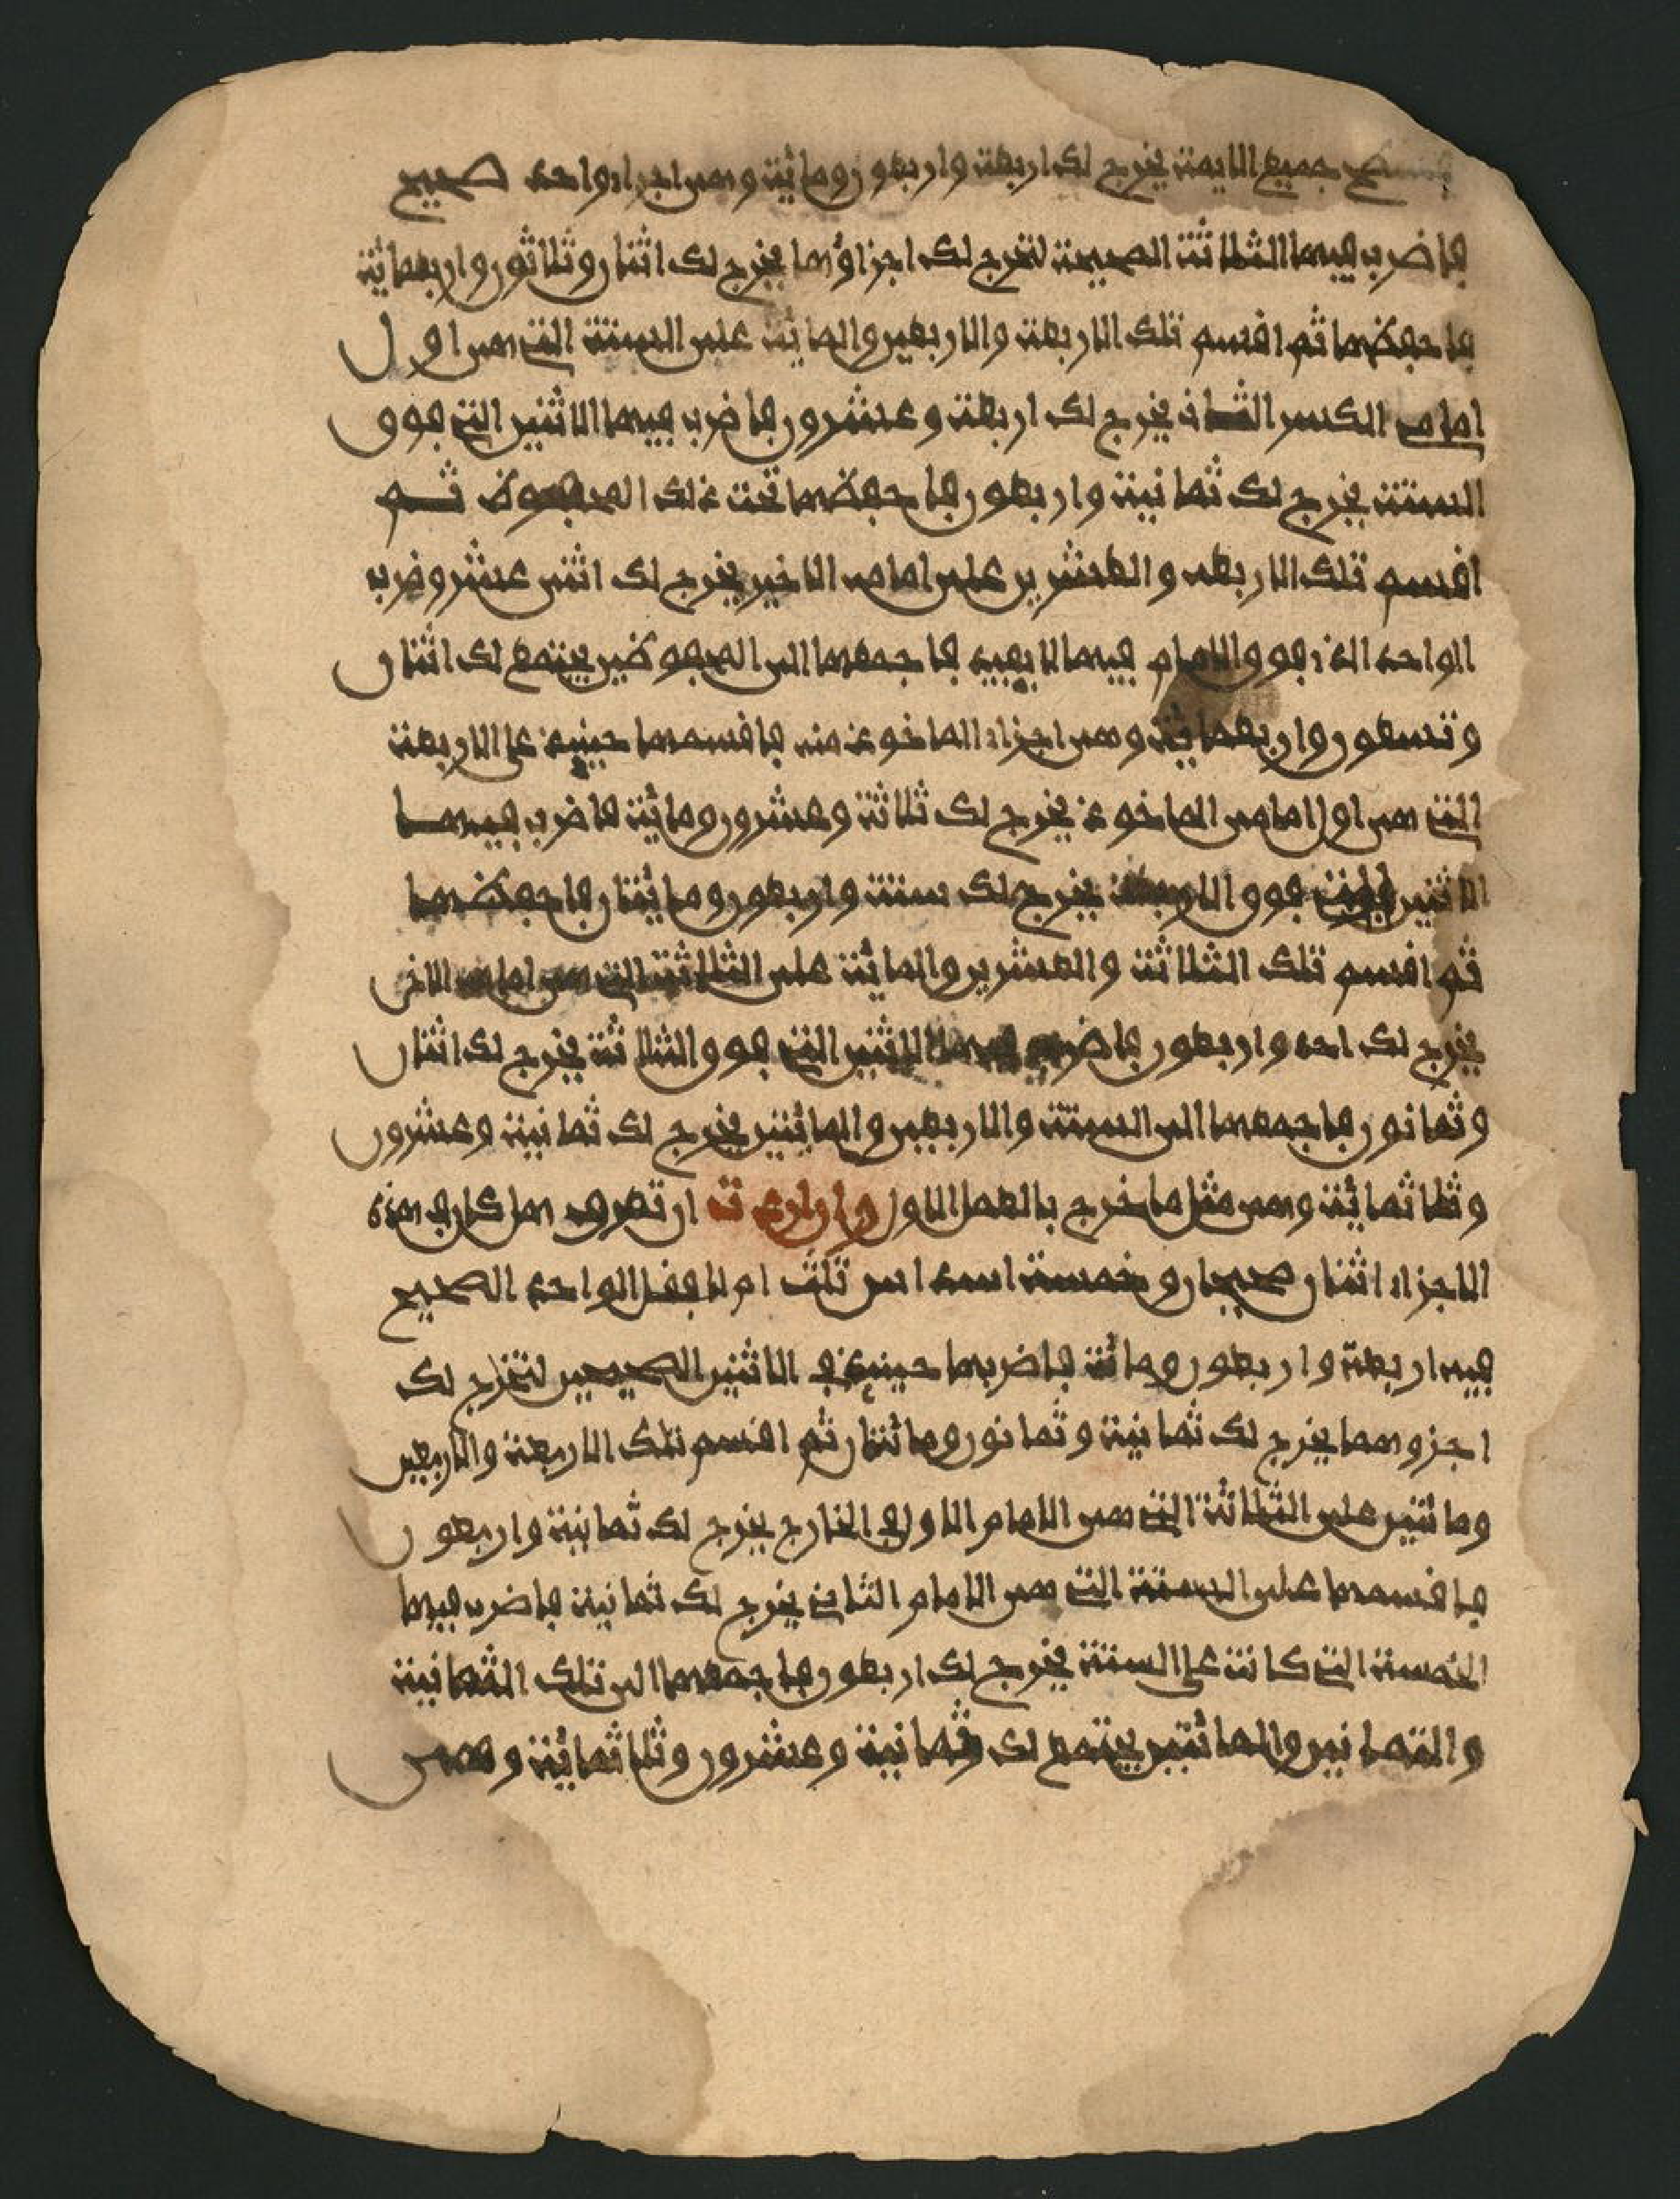 جميع الايمة يخرج لك اربعة واربعون ومائة وهي اجزاء واحد صحيح
فاضرب فيها الثلاثة الصحيحة لتخرج لك اجزاؤها يخرج لك اثنان وثلاثون واربعمائة
فاحفظها ثم اقسم تلك الاربعة والاربعين والمائة على الستة التي هي اول
امامي الكسر الثاني يخرج لك اربعة وعشرون فاضرب فيها الاثنين التي فوق
الستة يخرج لك ثمانية واربعون فاحفظها تحت ذلك المحفوظ ثم
اقسم تلك الاربعة والعشرين على امامه الاخير يخرج لك اثنى عشر وضرب
الواحد الذي فوق الامام فيها لا يفيد فاجمعها الى المحفوظين يجتمع لك اثنان
وتسعون واربعمائة وهي اجزاء الماخوذ منه فاقسمها حينيذ على الاربعة
التي هي اول امامي الماخوذ يخرج لك ثلاثة وعشرون ومائة فاضرب فيها
الاثنين التي فوق الاربعة يخرج لك ستة واربعون ومائتان فاحفظها
ثم اقسم تلك الثلاثة والعشرين والمائة على الثلاثة التي هي امامه الاخر
يخرج لك احد واربعون فاضرب فيها الاثنين التي فوق الثلاثة يخرج لك اثنان
وثمانون فاجمعها الى الستة والاربعين والمائتين يخرج لك ثمانية وعشرون
وثلاثمائة وهي مثل ما خرج بالعمل الاول وان اردت ان تعرف هل كان في هذه
الاجزاء اثنان صحيحان وخمسة اسداس ثلث ام لا فقل الواحد الصحيح
فيه اربعة واربعون ومائة فاضربها حينيذ في الاثنين الصحيحين لتخرج لك
اجزوهما يخرج لك ثمانية وثمانون ومائتان ثم اقسم تلك الاربعة والاربعين
ومائتين على الثلاثة التي هي الامام الاول في الخارج يخرج لك ثمانية واربعون
فاقسمها على الستة التي هي الامام الثاني يخرج لك ثمانية فاضرب فيها
الخمسة التي كانت على الستة يخرج لك اربعون فاجمعها الى تلك الثمانية
والثمانين والمائتين يجتمع لك ثمانية وعشرون وثلاثمائة وهي